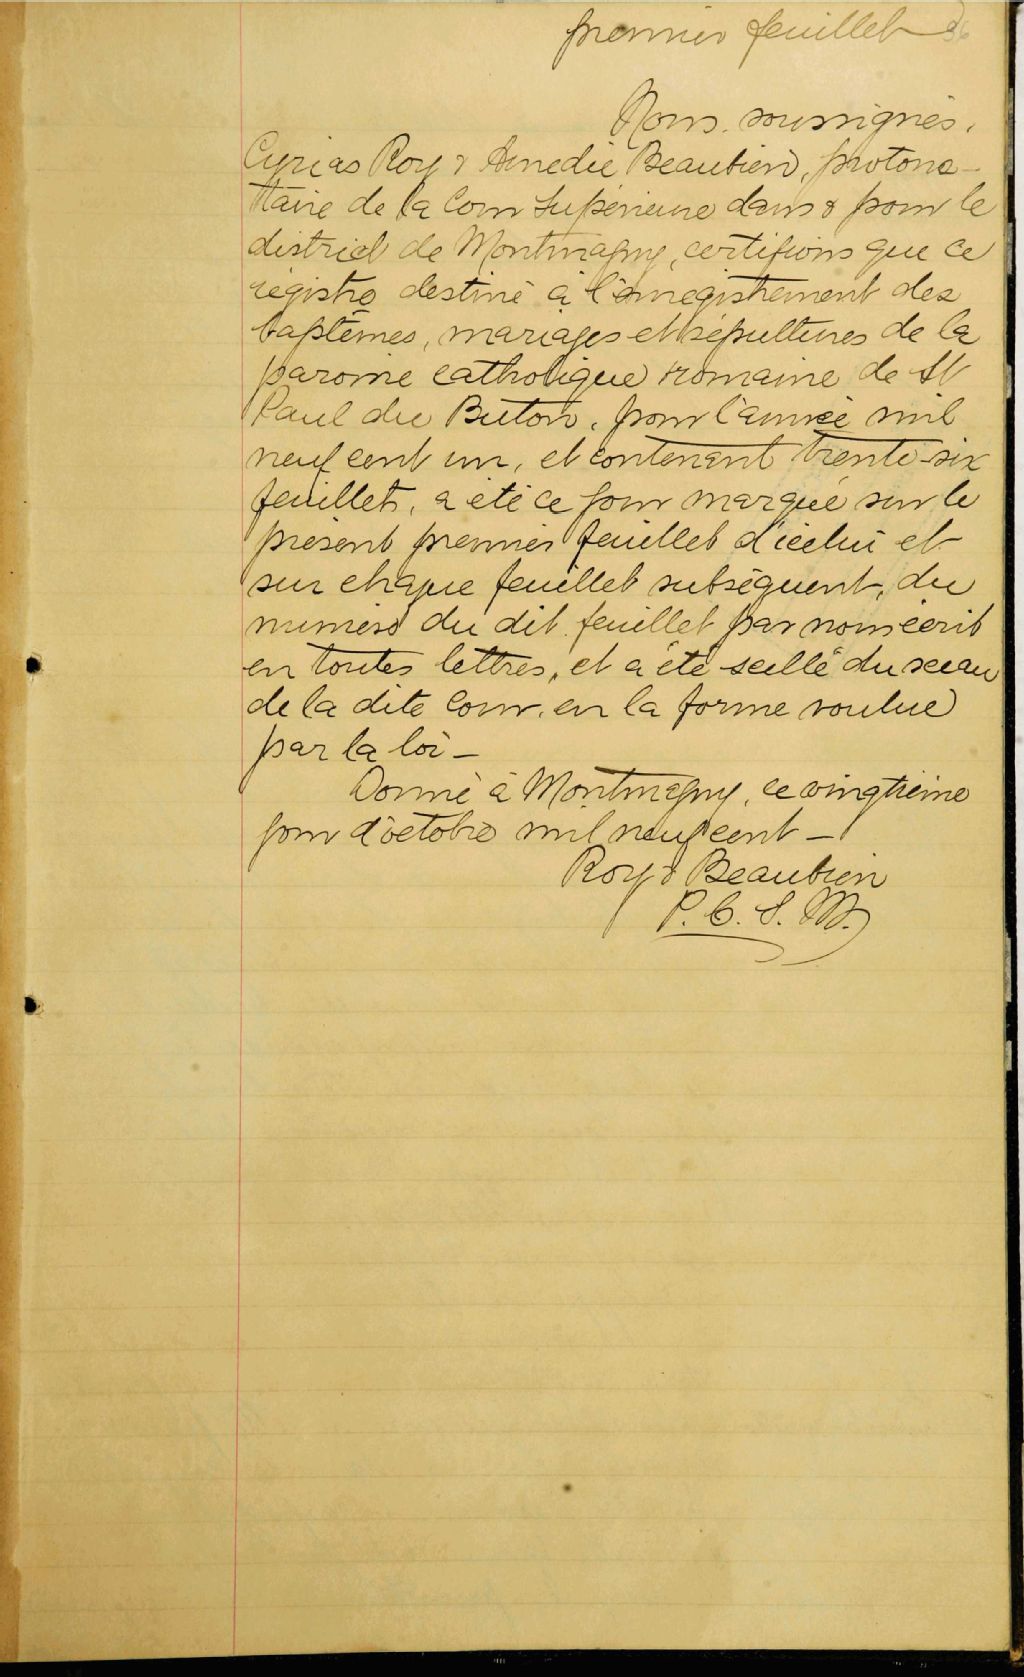 premier feuillet 36
Nous, soussignés,
Cyrias Roy & Amedie Beaubien, protono-
taire de la Cour Supérieure dans & pour le
district de Montmagny, certifions que ce
régistre destiné à l'enregistrement des
baptêmes, mariages et sépultures de la
paroisse catholique romaine de St
Paul du Buton, pour l'année mil
neuf cent un, et contenant trente-six
feuillets, a été ce jour marqué sur le
présent premier feuillet d'icelui et
sur chaque feuillet subséquent, du
numéro du dit feuillet par nous écrit
en toutes lettres, et a été scellé du sceau
de la dite Cour, en la forme voulue
par la loi -
Donné à Montmagny, ce vingtième
jour d'octobre mil neuf cent -
Roy & Beaubien
P. C. S. M.